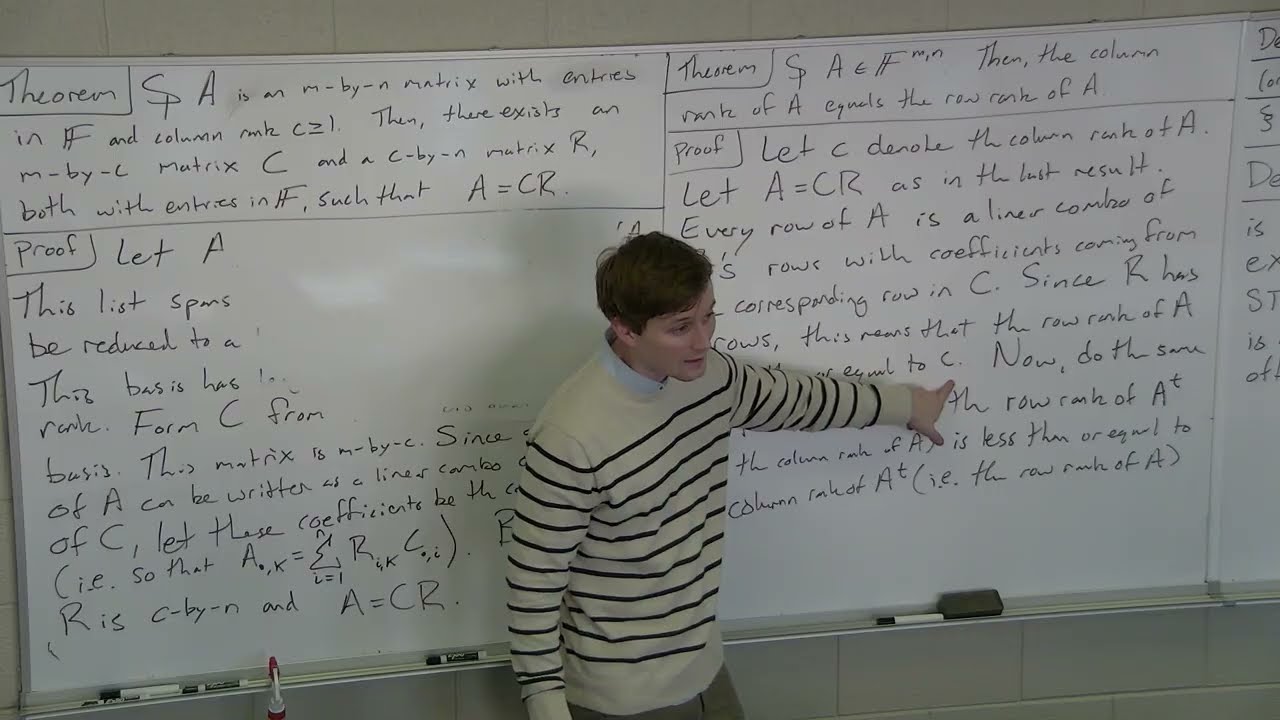 Theorem S A is an m-by-n matrix with entries
in F and column rank c≥1. Then, there exists an
m-by-c matrix C and a c-by-n matrix R,
both with entries in F, such that A=CR.
Proof Let A
This list spans
be reduced to a
This basis has
rank. Form C from
basis. This matrix is m-by-c. Since
of A can be written as a linear combo
of C, let these coefficients be the
(i.e. so that A.,k = Σ i=1 R i,k C.,i).
R is c-by-n and A=CR.
Theorem S A ∈ F m,n Then, the column
rank of A equals the row rank of A.
Proof Let c denote the column rank of A.
Let A=CR as in the last result.
Every row of A is a linear combo of
's rows with coefficients coming from
corresponding row in C. Since R has
rows, this means that the row rank of A
or equal to c. Now, do the same
the row rank of A^t
the column rank of A) is less than or equal to
column rank of A^t (i.e. the row rank of A)
De
(o
De
is
ex
ST
is
off